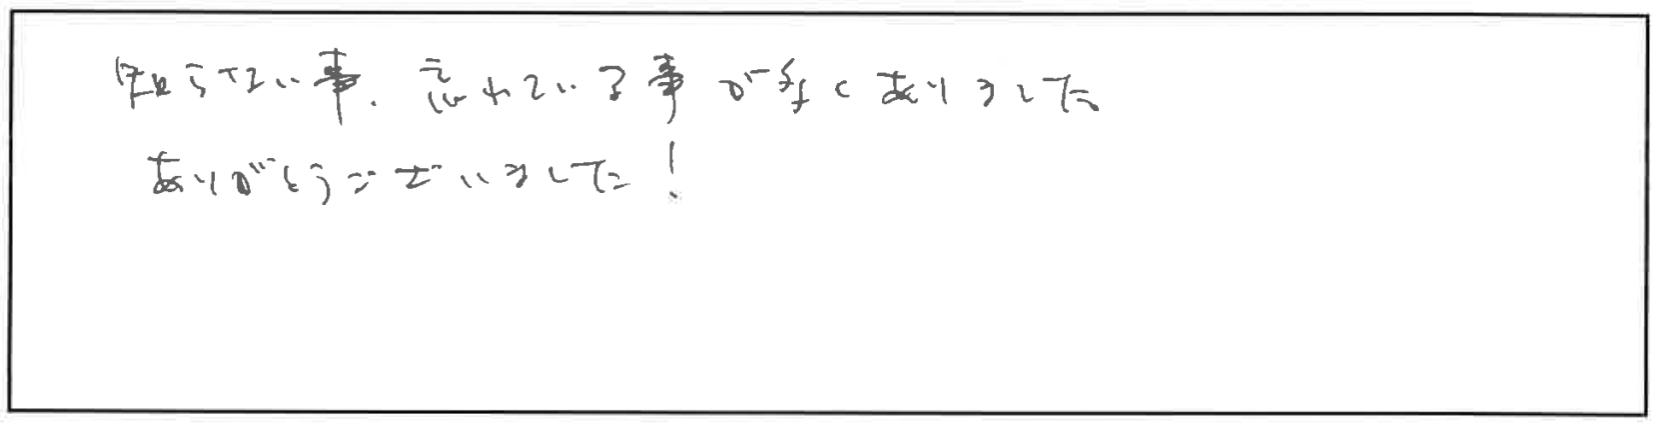 知らない事、忘れている事が多くありました
ありがとうございました!